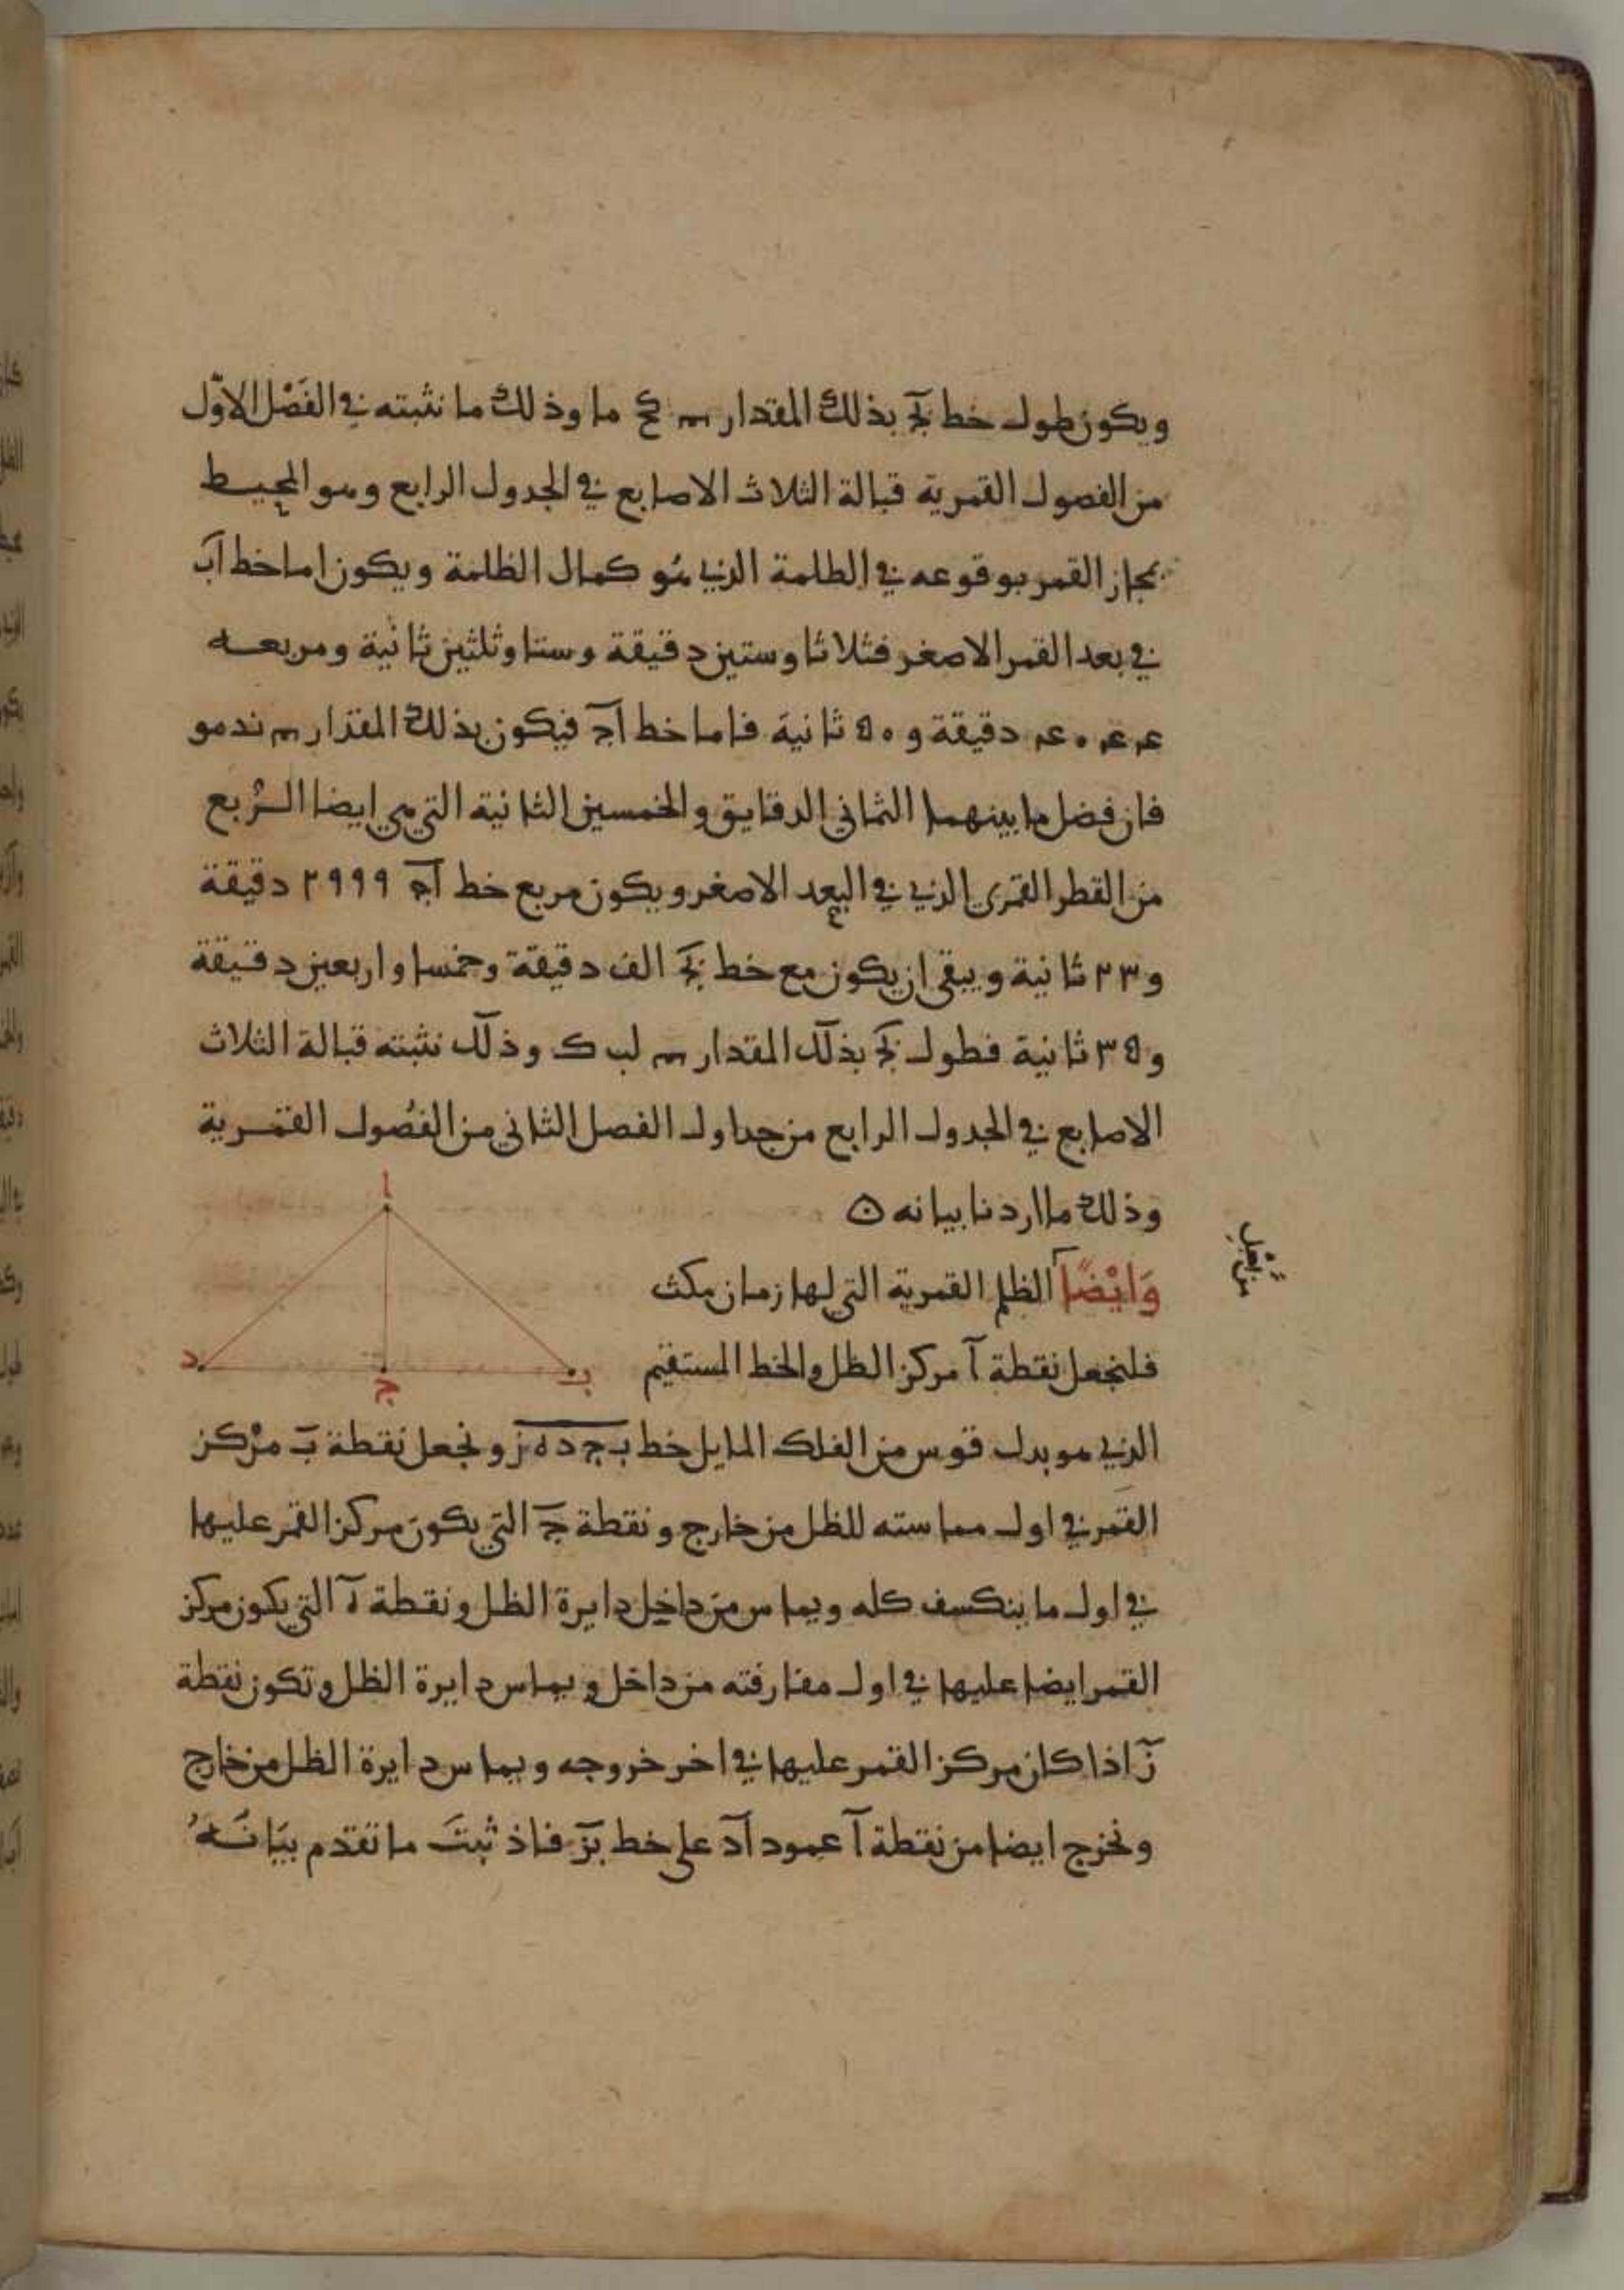 ويكون طول خط بج بذلك المقدار كح ما وذلك ما نثبته في الفَصْل الاوّل
من الفصول القمرية قبالة الثلاث الاصابع في الجدول الرابع وهو المحيط
بمجاز القمر بوقوعه في الظلمة الذي هُو كمال الظلمة ويكون اما خط آب
في بعد القمر الاصغر فثلاثا وستين دقيقة وستا وثلثين ثانية ومربعه
۴۰۴۴ دقيقة و ٥٠ ثانية فاما خط آج فيكون بذلك المقدار ند مو
فان فضل ما بينهما الثماني الدقايق والخمسين الثانية التي هي ايضا الرُبع
من القطر القمَري الذي في البعد الاصغر ويكون مربع خط آج ٢٩٩٩ دقيقة
و ٢٣ ثانية ويبقى ان يكون مع خط بج الف دقيقة وخمسا واربعين دقيقة
و ٣٥ ثانية فطول بج بذلك المقدار لب ك وذلك نثبته قبالة الثلاث
الاصابع في الجدول الرابع من جداول الفصل الثاني من الفصُول القمرية
وذلك ما اردنا بيانه ن
وَايْضًا الظلم القمرية التي لها زمان مكث
فلنجعل نقطة آ مركز الظل والخط المستقيم
الذي هو بدل قوس من الفلك المايل خط ب ج د ه ز ونجعل نقطة ب مرْكز
القمَر في اول مماسته للظل من خارج ونقطة ج التي يكون مركز القمر عليها
في اول ما ينكسف كله ويماس من داخل دايرة الظل ونقطة ه التي يكون مركز
القمر ايضا عليها في اول مفارقته من داخل ويماس دايرة الظل وتكون نقطة
ز اذا كان مركز القمر عليها في اخر خروجه ويماس دايرة الظل من خارج
ونخرج ايضا من نقطة آ عمود آد على خط بز فاذ ثبتَ ما تقدم بيَانَهُ
ا
د
ج
ب